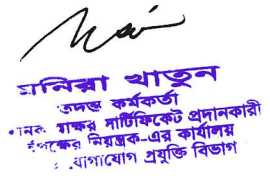 মনিরা খাতুন
তদন্ত কর্মকর্তা
সার্টিফিকেট প্রদানকারী
নিয়ন্ত্রক-এর কার্যালয়
যোগাযোগ প্রযুক্তি বিভাগ